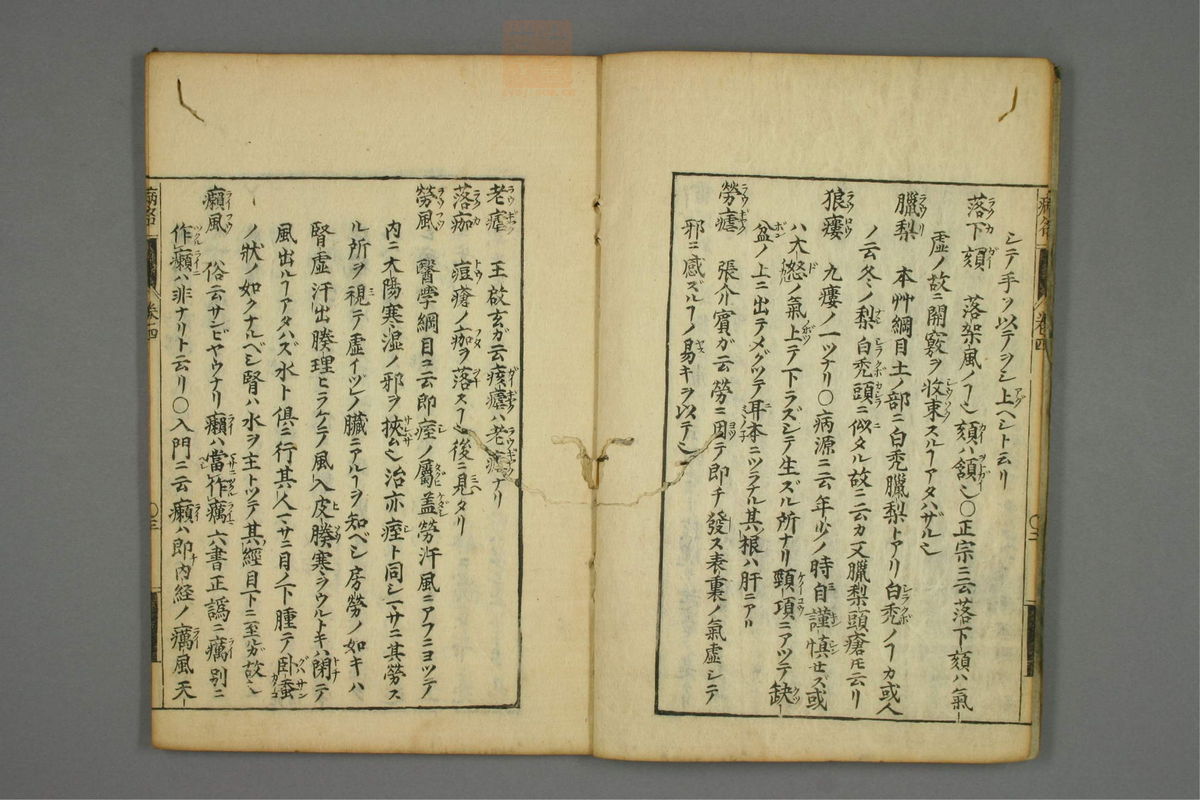 シテ手ヲ以テヲシ上ヘシト云リ
落下頦 落架風ノヿ也頦ハ頷也〇正宗ニ云落下頦ハ氣
虚ノ故ニ關竅ヲ收束スルヿアタハザル也
臘梨 本艸綱目土ノ部ニ白禿臘梨トアリ白禿ノヿカ或人
ノ云冬ノ梨白禿頭ニ似タル故ニ云カ又臘梨頭瘡トモ云リ
狼瘻 九瘻ノ一ツナリ〇病源ニ云年少ノ時自謹慎セズ或
ハ大怒ノ氣上テ下ラズシテ生ズル所ナリ頸項ニアツテ缺
盆ノ上ニ出テメグツテ耳本ニツラナル其根ハ肝ニアリ
勞瘧 張介賓ガ云勞ニ因テ即チ發ス表裏ノ氣虚シテ
邪ニ感ズルヿノ易キヲ以テ也
老瘧 王啟玄ガ云痎瘧ハ老瘧ナリ
落痂 痘瘡ノ痂ヲ落スヿ也後ニ見タリ
勞風 醫学綱目ニ云即痓ノ屬蓋勞汗風ニアフニヨツテ
内ニ太陽寒湿ノ邪ヲ挾ム也治亦痓ト同シマサニ其勞ス
ル所ヲ視テ虚イヅレノ臓ニアルヿヲ知ベシ房勞ノ如キハ
腎虚汗出腠理ヒラケテ風入皮腠寒ヲウルトキハ閉テ
風出ルヿアタハズ水ト倶ニ行其人マサニ目ノ下腫テ臥蚕
ノ状ノ如クナルベシ腎ハ水ヲ主トツテ其經目下ニ至ガ故也
癩風 俗云サンビヤウナリ癩ハ當作癘六書正譌ニ癘別ニ
作癩ハ非ナリト云リ〇入門ニ云癩ハ即内経ノ癘風天
卷四
卷四
〇三